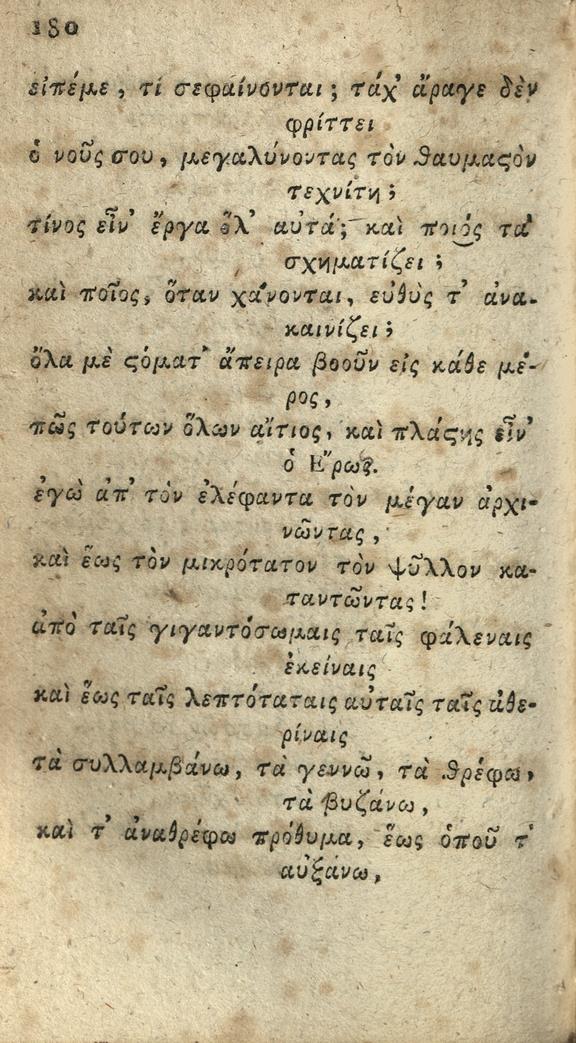 180
εἰπέμε, τί σεφαίνονται; τάχ' ἄραγε δὲν
φρίττει
ὁ νοῦς σου, μεγαλύνοντας τὸν θαυμαϛὸν
τεχνίτη;
τίνος εἶν' ἔργα ὅλ' αὐτά; καὶ ποιὸς τὰ
σχηματίζει;
καὶ ποῖος, ὅταν χάνονται, εὐθὺς τ' ἀνα-
καινίζει;
ὅλα μὲ ϛόματ' ἄπειρα βοοῦν εἰς κάθε μέ-
ρος,
πῶς τούτων ὅλων αἴτιος, καὶ πλάϛης εἶν'
ὁ Ἔρως.
ἐγὼ ἀπ' τὸν ἐλέφαντα τὸν μέγαν ἀρχι-
νῶντας,
καὶ ἕως τὸν μικρότατον τὸν ψῦλλον κα-
ταντῶντας!
ἀπὸ ταῖς γιγαντόσωμαις ταῖς φάλεναις
ἐκείναις
καὶ ἕως ταῖς λεπτόταταις αὐταῖς ταῖς ἀθε-
ρίναις
τὰ συλλαμβάνω, τὰ γεννῶ, τὰ θρέφω,
τὰ βυζάνω,
καὶ τ' ἀναθρέφω πρόθυμα, ἕως ὁποῦ τ'
αὐξάνω,